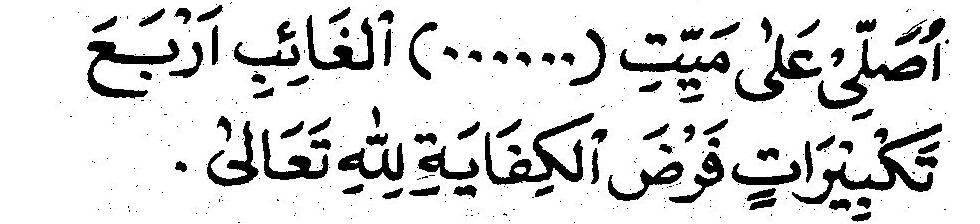 اُصَلِّيْ عَلٰى مَيِّتِ (......) الْغَائِبِ اَرْبَعَ
تَكْبِيْرَاتٍ فَرْضَ الْكِفَايَةِ لِلّٰهِ تَعَالٰى .